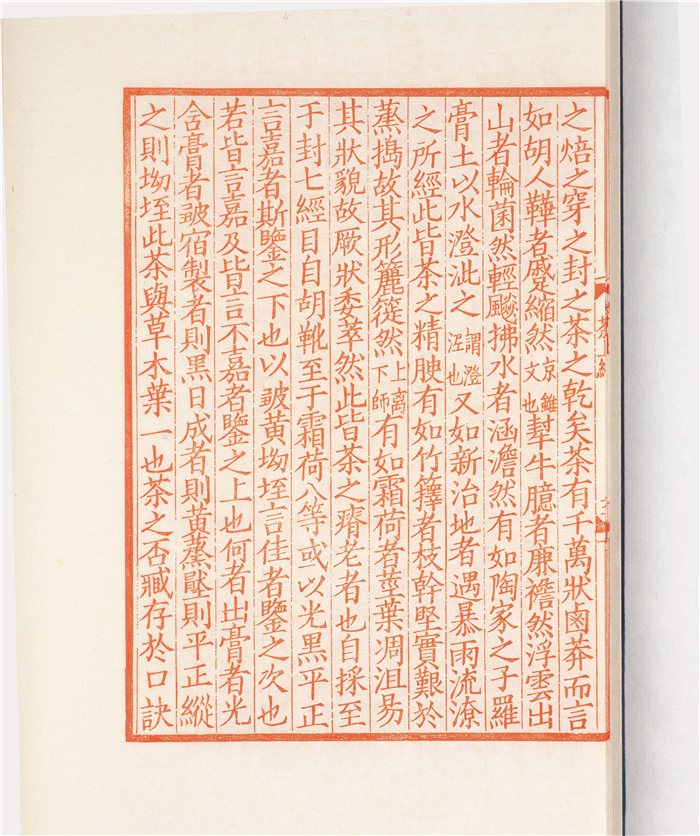 之焙之穿之封之茶之乾矣茶有千萬狀鹵莽而言
如胡人鞾者蹙縮然京錐文也犎牛臆者廉襜然浮雲出
山者輪菌然輕飈拂水者涵澹然有如陶家之子羅
膏土以水澄泚之謂澄泥也又如新治地者遇暴雨流潦
之所經此皆茶之精腴有如竹籜者枝幹堅實艱於
蒸搗故其形籭簁然上离下師有如霜荷者莖葉凋沮易
其狀貌故厥狀委萃然此皆茶之瘠老者也自採至
于封七經目自胡靴至于霜荷八等或以光黑平正
言嘉者斯鑒之下也以皺黃坳垤言佳者鑒之次也
若皆言嘉及皆言不嘉者鑒之上也何者出膏者光
含膏者皺宿製者則黑日成者則黃蒸壓則平正縱
之則坳垤此茶與草木葉一也茶之否臧存於口訣